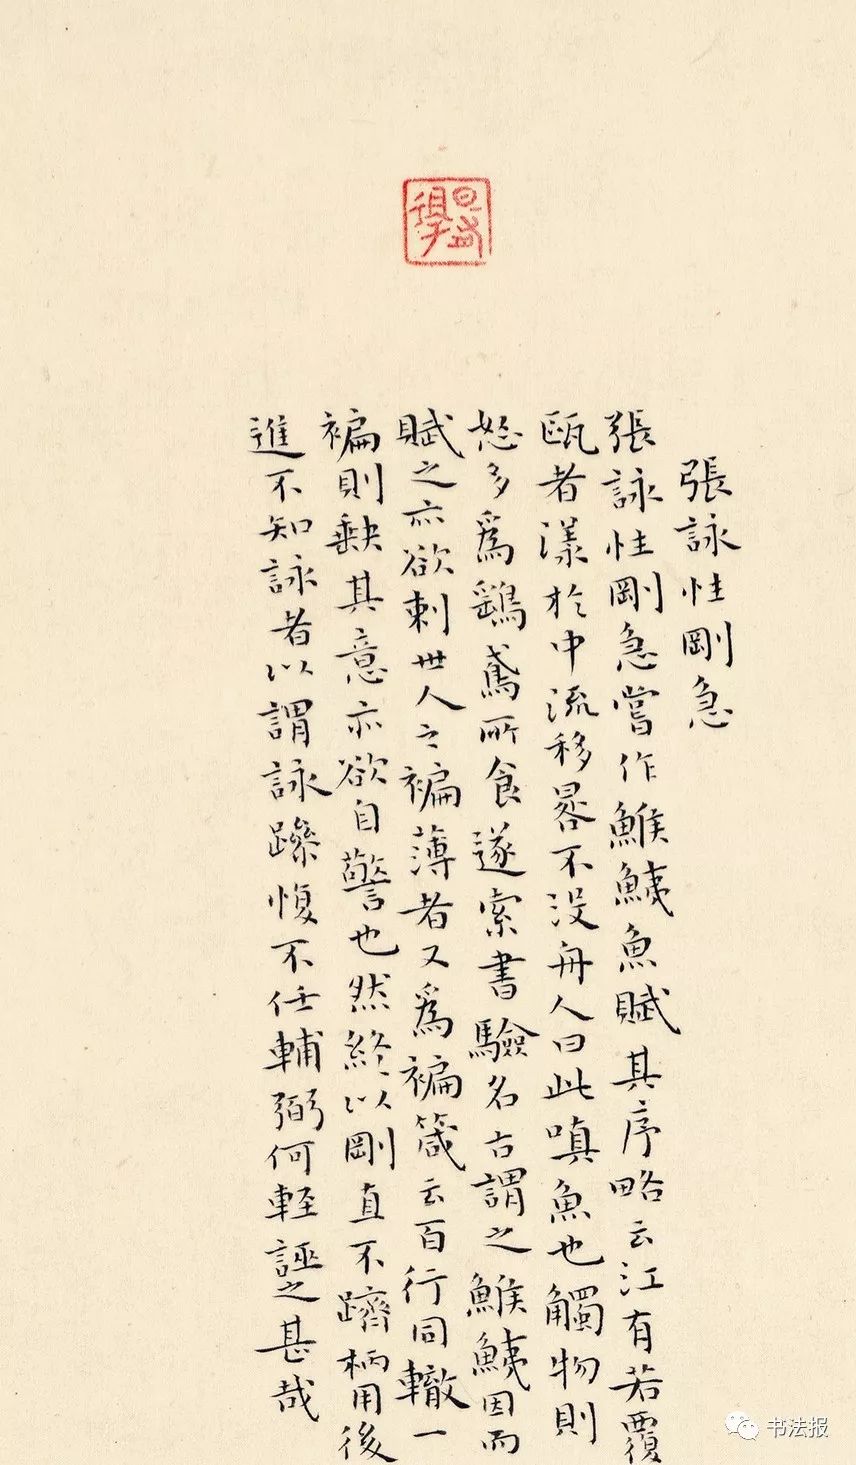 張詠性剛急
張詠性剛急嘗作鯸鮧魚賦其序略云江有若覆
甌者漾於中流移晷不没舟人曰此嗔魚也觸物則
怒多為鵶鳶所食遂索書驗名古謂之鯸鮧因而
賦之亦欲刺世人之褊薄者又為褊箴云百行同轍一
褊則缺其意亦欲自警也然終以剛直不躋柄用後
進不知詠者以謂詠躁愎不任輔弼何輕誣之甚哉
书法报